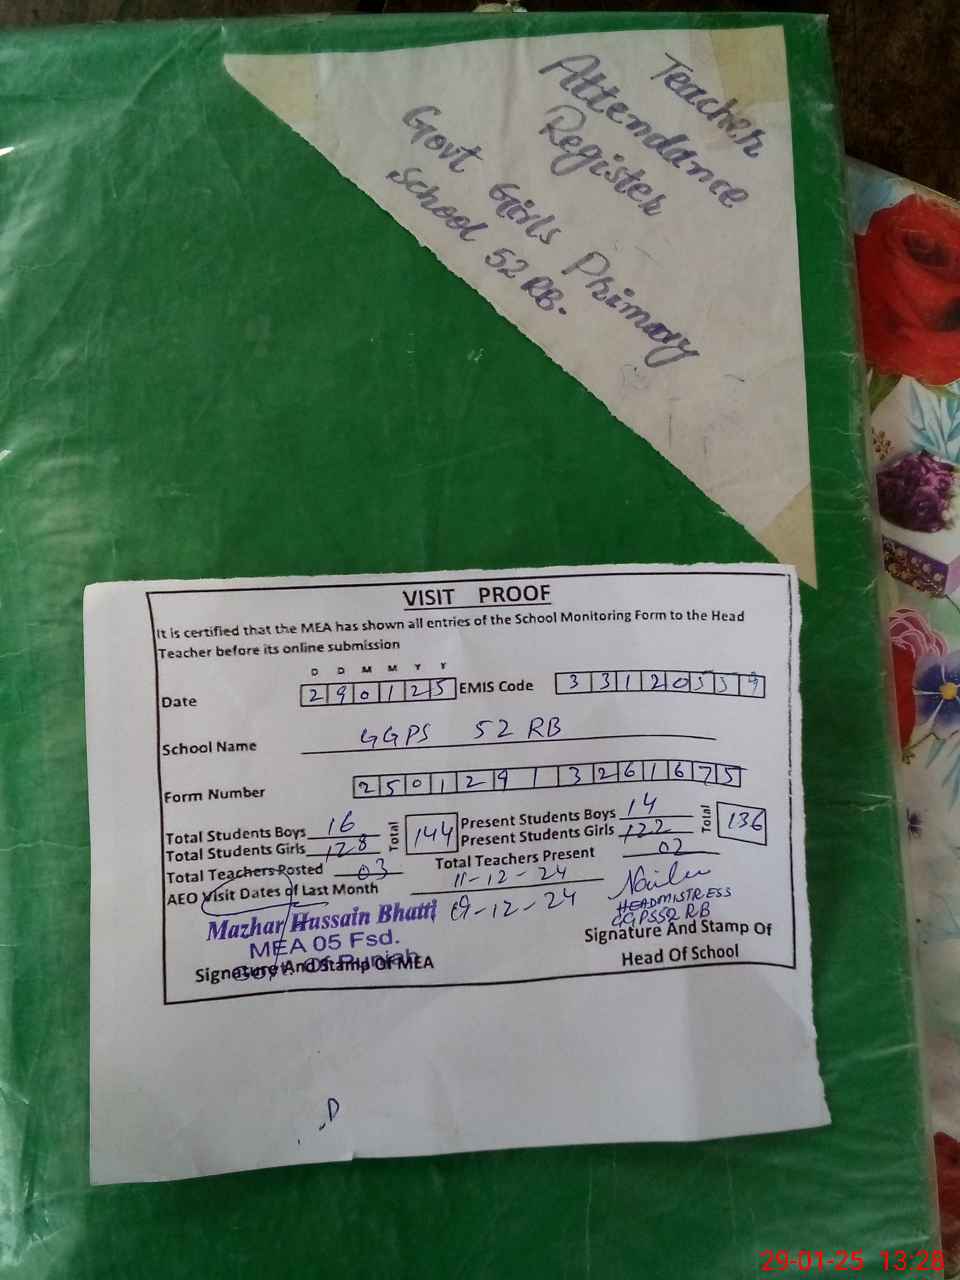 Teacher
Attendance
Register
Govt Girls Primary
School 52 RB.
VISIT PROOF
It is certified that the MEA has shown all entries of the School Monitoring Form to the Head
Teacher before its online submission
D D M M Y Y
Date 290125 EMIS Code 33120559
School Name GGPS 52 RB
Form Number 25012913261675
Total Students Boys 16 Total 144 Present Students Boys 14 Total 136
Total Students Girls 128 Present Students Girls 122
Total Teachers Posted 03 Total Teachers Present 02
AEO Visit Dates of Last Month 11-12-24
-12-24
Mazhar Hussain Bhatti
MEA 05 Fsd.
Govt. Of Punjab
Signature And Stamp Of MEA
HEADMISTRESS
GGPS52 RB
Signature And Stamp Of
Head Of School
29-01-25 13:28